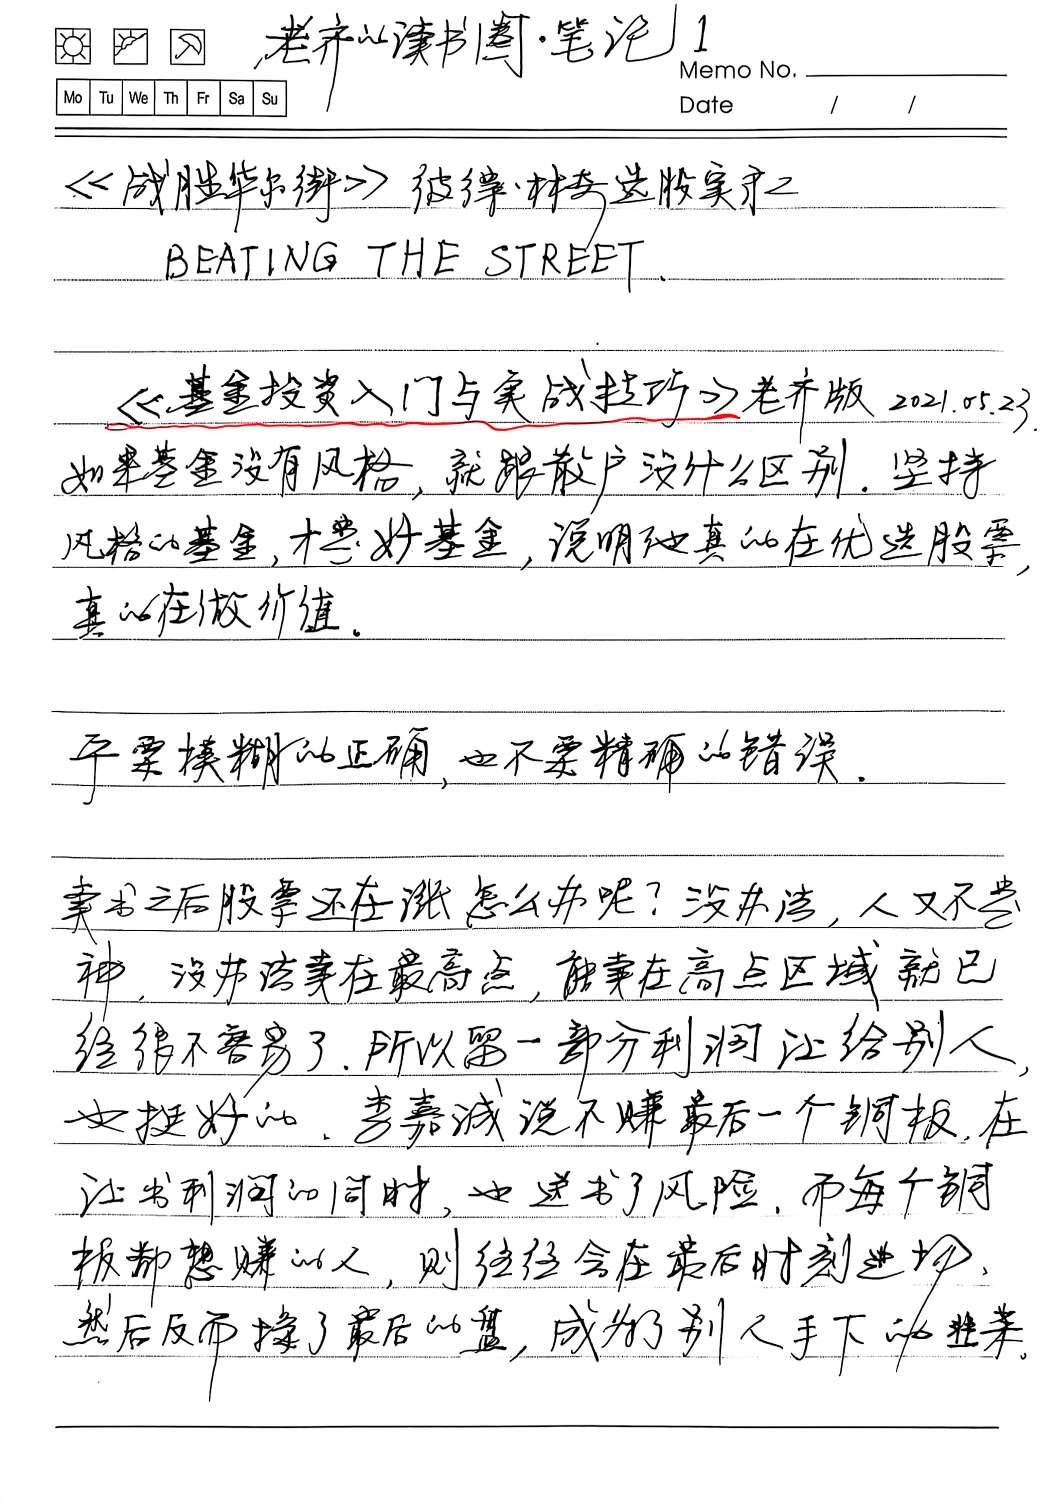 老齐的读书圈·笔记 1
Memo No.
Mo Tu We Th Fr Sa Su
Date / /
《战胜华尔街》彼得·林奇选股实录
BEATING THE STREET.
《基金投资入门与实战技巧》老齐版 2021.05.23.
如果基金没有风格,就跟散户没什么区别.坚持
风格的基金,才是好基金,说明他真的在优选股票,
真的在做价值。
宁要模糊的正确,也不要精确的错误.
卖出之后股票还在涨怎么办呢?没办法,人又不是
神,没办法卖在最高点,能卖在高点区域就已
经很不容易了.所以留一部分利润让给别人,
也挺好的.李嘉诚说不赚最后一个铜板.在
让出利润的同时,也送出了风险.而每个铜
板都想赚的人,则往往会在最后时刻进场、
然后反而接了最后的盘,成为了别人手下的韭菜。